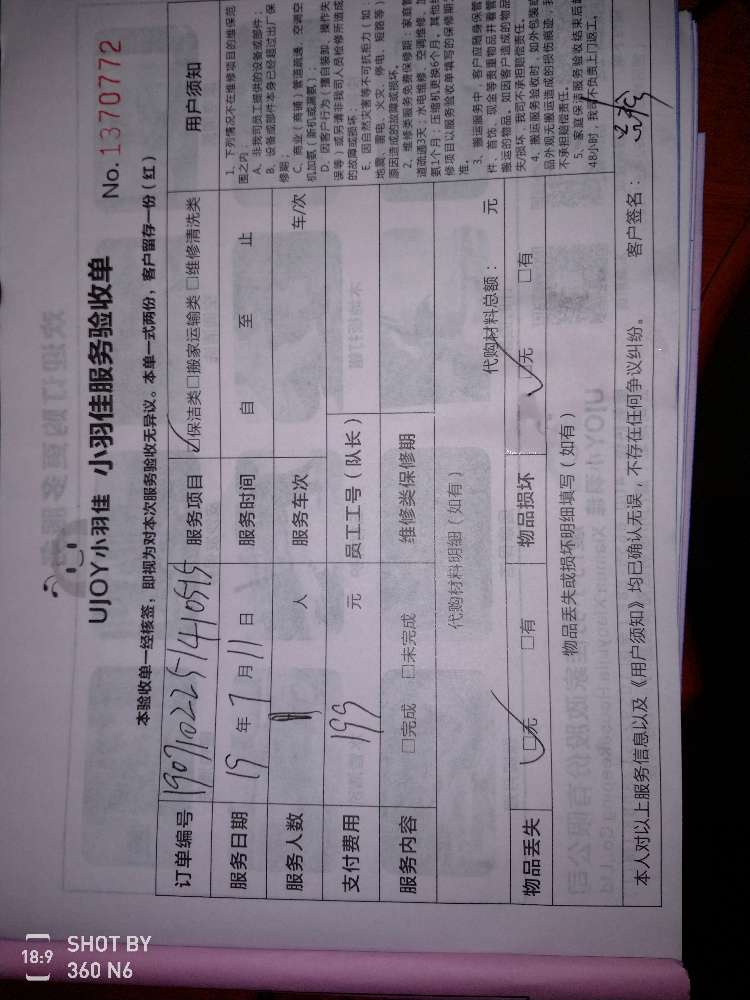 UJOY小羽佳 小羽佳服务验收单
No. 1370772
本验收单一经核签，即视为对本次服务验收无异议。本单一式两份，客户留存一份（红）
订单编号
服务项目 ☑保洁类□搬家运输类 □维修清洗类
用户须知
服务日期 19 年 7 月 11 日
服务时间 自 至 止
服务人数 人
服务车次 车/次
支付费用 199 元
员工工号（队长）
服务内容 □完成 □未完成
维修类保修期
代购材料明细（如有）
代购材料总额： 元
物品丢失 ☑无 □有
物品损坏 ☑无 □有
物品丢失或损坏明细填写（如有）
1. 下列情况不在维修项目的维保范
围之内：
A. 非我司员工提供的设备或部件；
B. 设备或部件本身已经超过出厂保
修期；
C. 商业（商铺）管道疏通、空调空
机加氨（新机或漏氨）；
D. 因客户行为（擅自装卸、操作失
误等）或另请非我司人员检修所造成
的故障或损坏；
E. 因自然灾害等不可抗拒力（如：
地震、雷电、火灾、停电、短路等）
原因造成的故障或损坏。
2. 维修类服务免费保修期：家
道疏通3天；水电维修、空调维修、
氨1个月；压缩机更换6个月。其他
修项目以服务验收单填写的保修期
准。
3. 搬运服务中，客户应随身保管
件、首饰、现金等贵重物品并看管
搬运的物品。如因客户造成的物品
失/损坏，我司不承担赔偿责任。
4. 搬运服务验收时，如外包装或
品外观无搬运造成的损伤痕迹，我
不承担赔偿责任。
5. 家庭保洁服务验收结束后
48小时，我司不负责上门返工。
本人对以上服务信息以及《用户须知》均已确认无误，不存在任何争议纠纷。
客户签名：
18:9
SHOT BY
360 N6